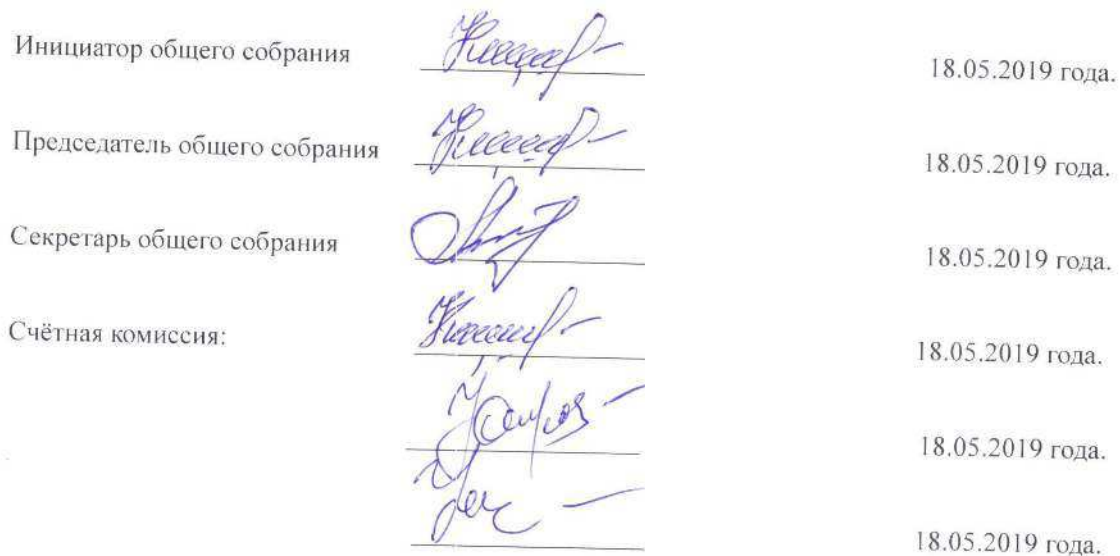 Инициатор общего собрания 18.05.2019 года.
Председатель общего собрания 18.05.2019 года.
Секретарь общего собрания 18.05.2019 года.
Счётная комиссия: 18.05.2019 года.
18.05.2019 года.
18.05.2019 года.